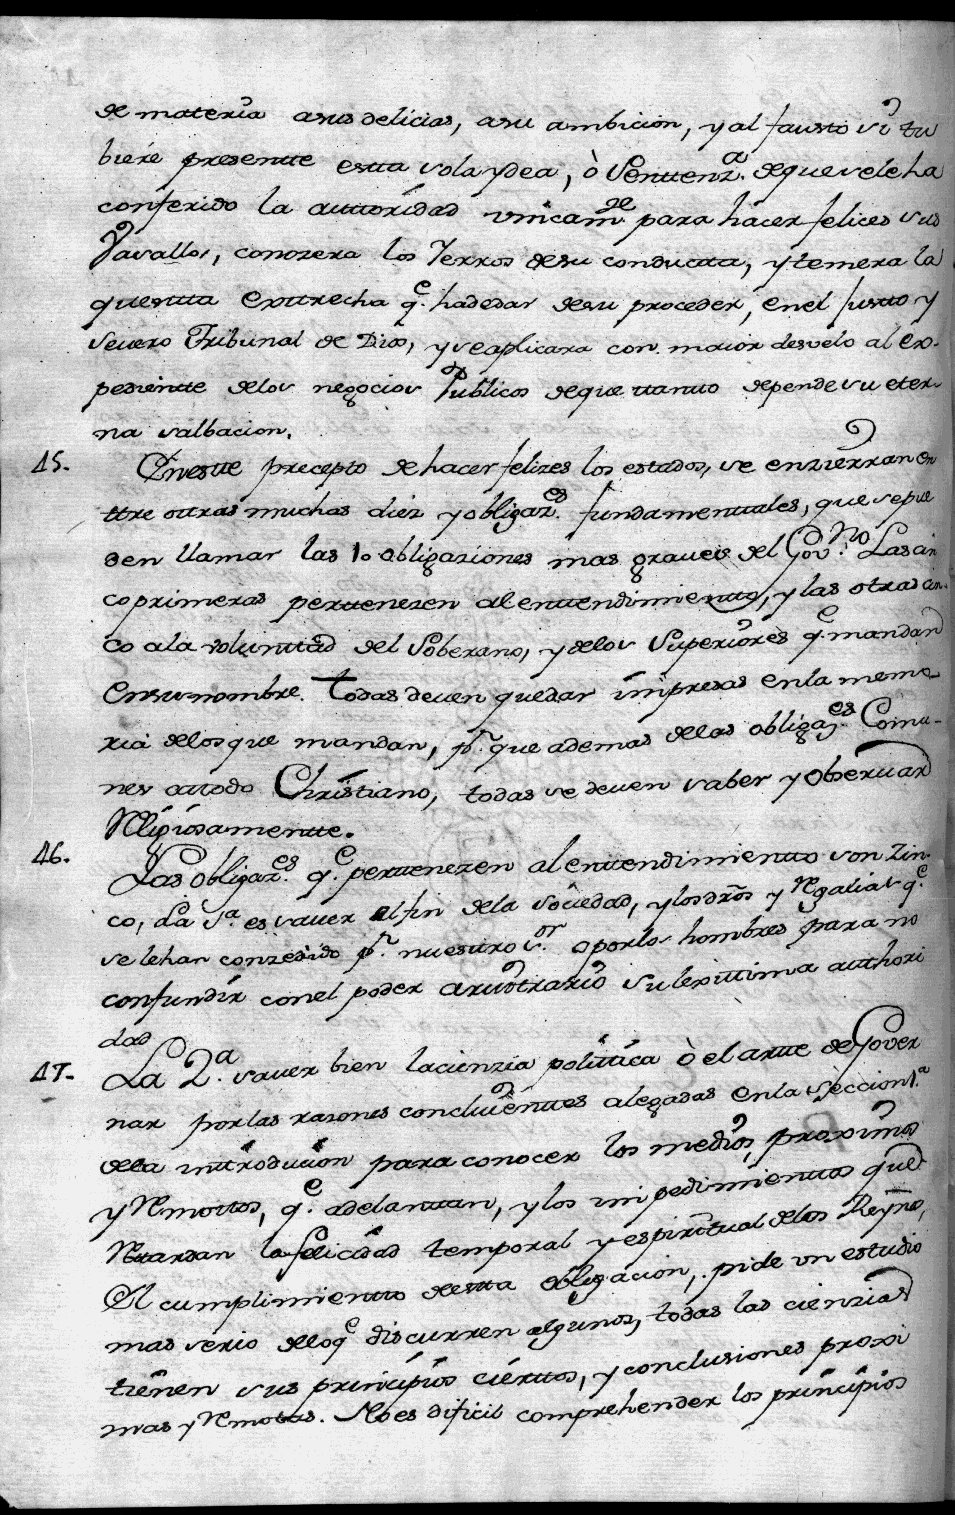 de materia asus delicias, asu ambicion, y al fausto si tu
biere presentte estta sola ydea, ò Senttenz.ª de que sele ha
conferido la auttoridad vnicam.te para hacer felices sus
Vasallos, conozera los Yerros desu conductta, y temera la
quentta extrecha q.e hadedar desu proceder, en el Justto y
seuero Tribunal de Dios, y se aplicara con maior desvelo al ex-
pedientte delos negocios Publicos de que ttantto depende su eter-
na salbacion.
45. En estte precepto de hacer felizes los estados, se enzierran en
ttre ottras muchas diez y obligaz.es fundamenttales, que sepue
den llamar las 10 obligaziones mas graues del Gov.no Las cin
co primeras perttenezen al enttendimientto, y las otras cin-
co ala voluntad del Soberano, y delos Superiores q.e mandan
en su nombre. Todas deuen quedar impresas en la memo-
ria delos que mandan, p.r que ademas delas obligaz.es Comu-
nes a ttodo Christiano, todas se deuen saber y obseruar
Religiosamentte.
46. Las obligaz.es q.e perttenezen al enttendimientto son zin-
co, La 1.ª es sauer el fin dela Sociedad, y los dros y Regalias q.e
se lehan conzedido p.r nuesttro S.or o porlos hombres para no
confundir con el poder arvittrario su lexittima authori
dad
47. La 2.ª sauer bien la cienzia polittica ò el artte de Gover
nar por las razones concluienttes alegadas en la seccion 1.ª
dela inttroducion para conocer los medios, proximos
y Remottos, q.e adelanttan, y los impedimienttos que
Rettardan la felicidad temporal y espiritual delos Reynos,
El cumplimientto destta obligacion, pide vn estudio
mas serio delo q.e discurren algunos, todas las cienzias
tienen sus principios ciertos, y conclusiones proxi
mas y Remotas. No es dificil comprehender los principios